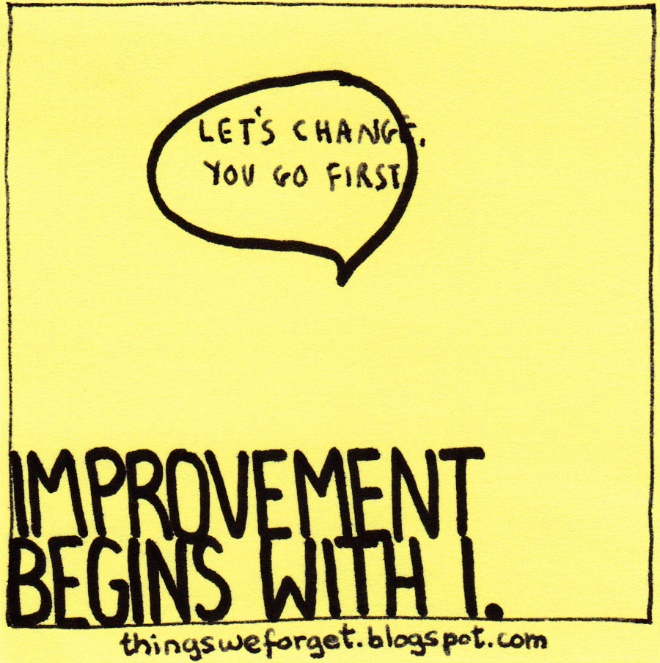 LET'S CHANGE.
YOU GO FIRST
IMPROVEMENT
BEGINS WITH I.
thingsweforget.blogspot.com